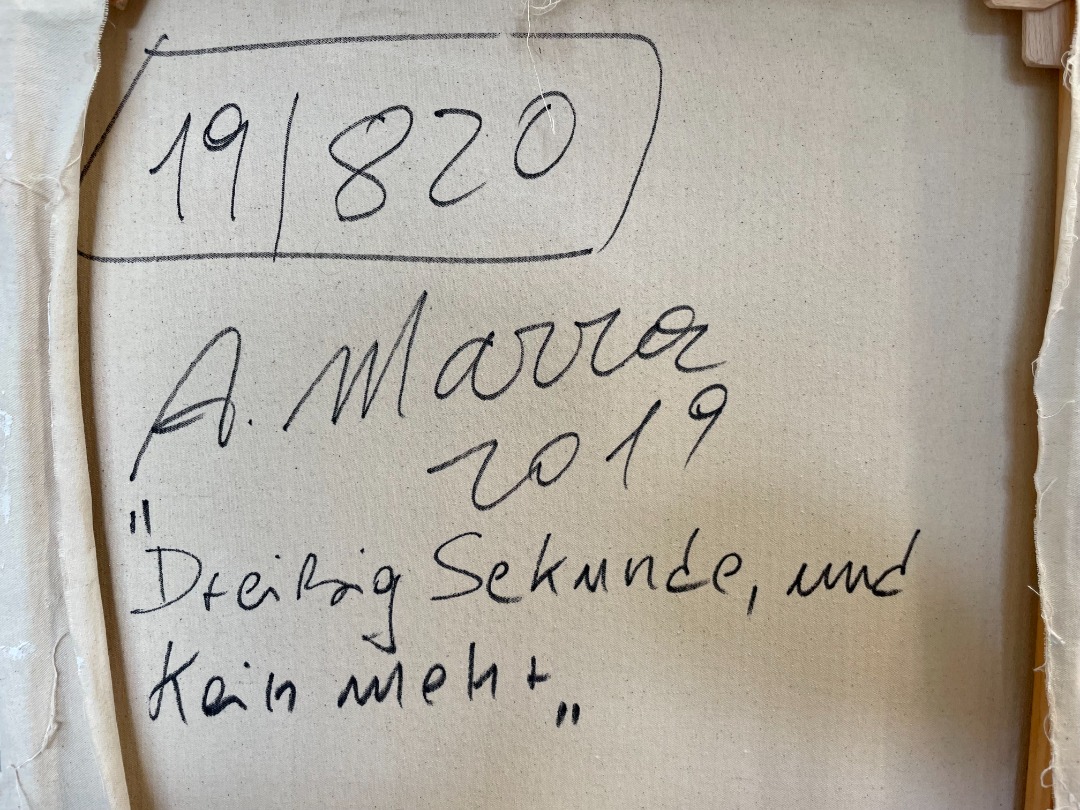 19/820
A. Marra
2019
"Dreißig Sekunde, und
Kein mehr"